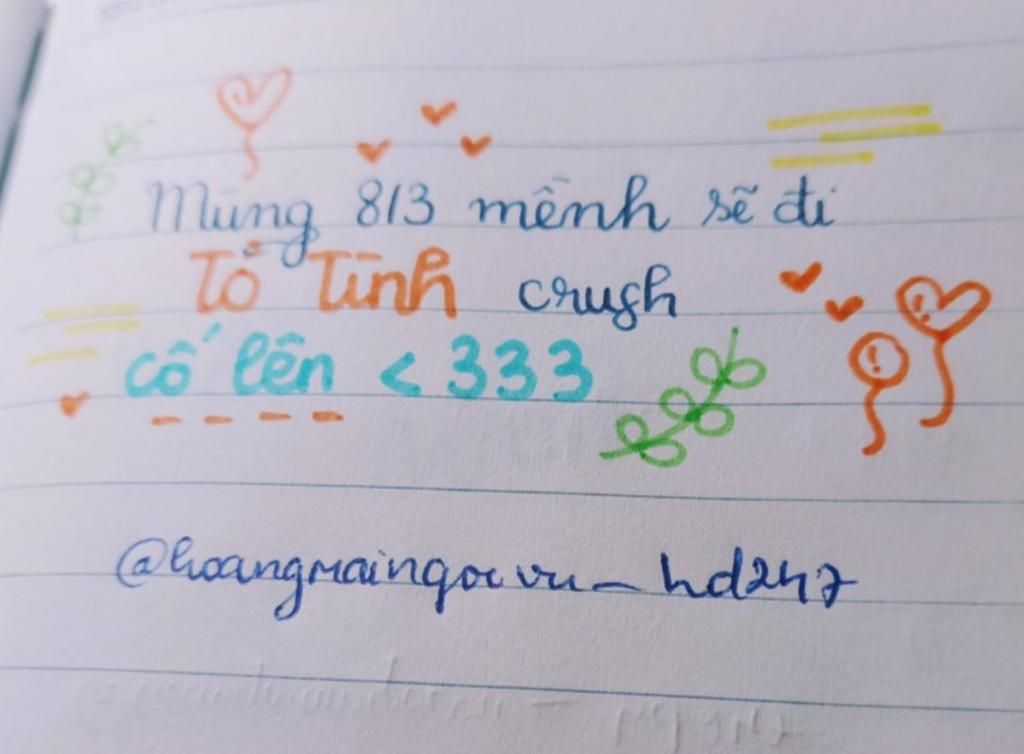 Mùng 8/3 mềnh sẽ đi
Tỏ Tình crush
cố lên < 333
@hoangmaingocvu_hd247